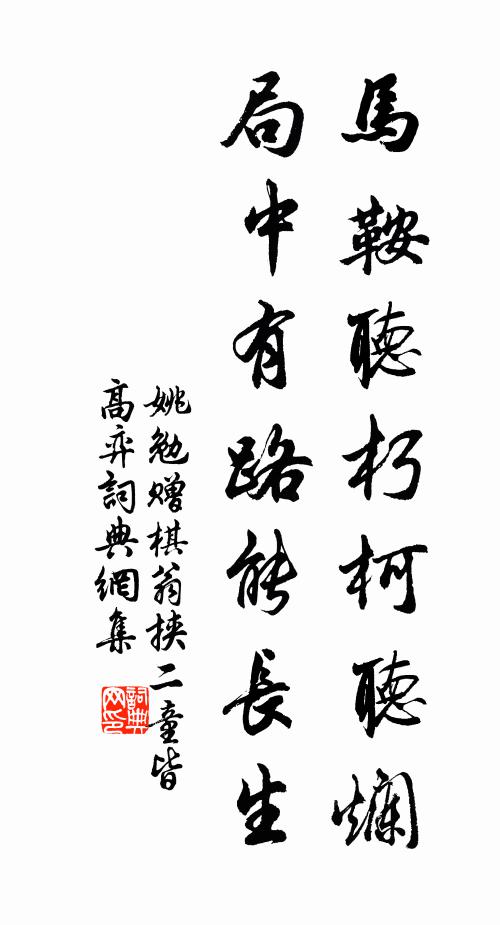 馬鞍聽朽柯聽爛
局中有路能長生
姚勉贈棋翁挾二童皆
高弈詞典網集
詞典网印